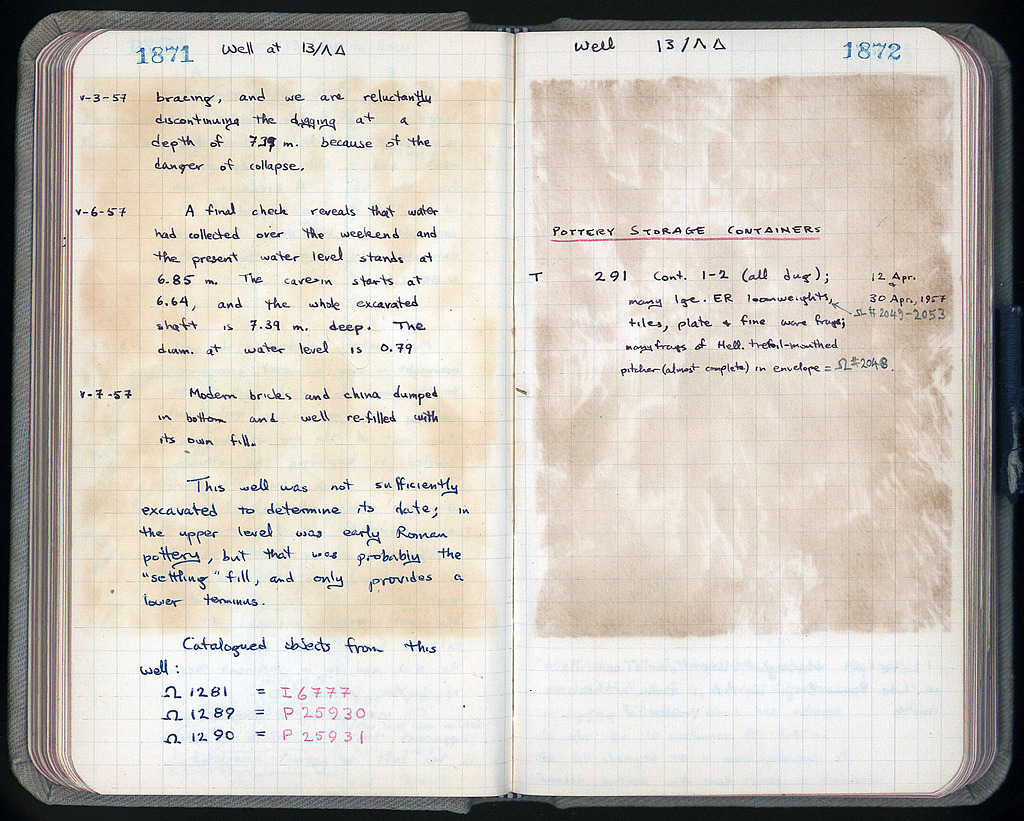 1871 Well at 13/ΛΔ
V-3-57 bracing, and we are reluctantly
discontinuing the digging at a
depth of 7.39 m. because of the
danger of collapse.
V-6-57 A final check reveals that water
had collected over the weekend and
the present water level stands at
6.85 m. The cave-in starts at
6.64, and the whole excavated
shaft is 7.39 m. deep. The
diam. at water level is 0.79
V-7-57 Modern bricks and china dumped
in bottom and well re-filled with
its own fill.
This well was not sufficiently
excavated to determine its date; in
the upper level was early Roman
pottery, but that was probably the
"settling" fill, and only provides a
lower terminus.
Catalogued objects from this
well:
Ω 1281 = I 6777
Ω 1289 = P 25930
Ω 1290 = P 25931
Well 13/ΛΔ 1872
POTTERY STORAGE CONTAINERS
T 291 Cont. 1-2 (all dug); 12 Apr.
many lge. ER loomweights, 30 Apr., 1957
Ω #2049-2053
tiles, plate & fine ware frags;
many frags of Hell. trefoil-mouthed
pitcher (almost complete) in envelope = Ω #2048.